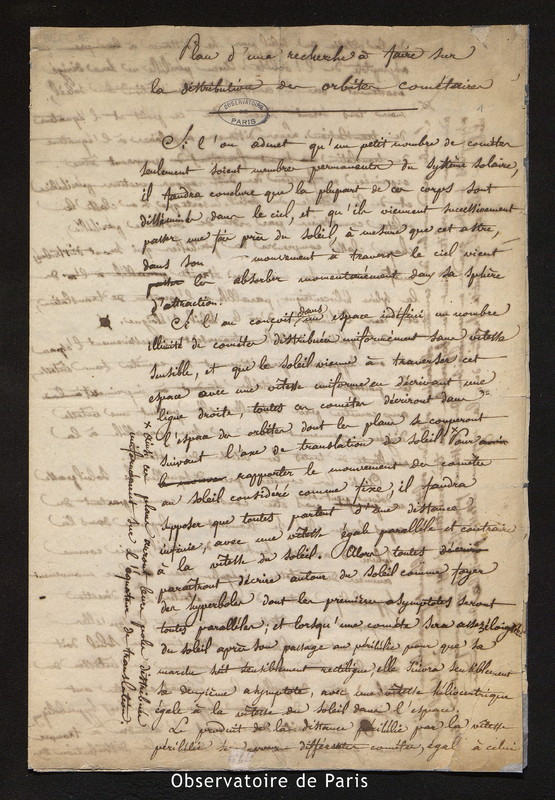 Plan d'une recherche à faire sur
la distribution des orbites cométaires
OBSERVATOIRE
PARIS
Si l'on admet qu'un petit nombre de comètes
seulement soient membres permanents du système solaire,
il faudra conclure que la plupart de ces corps sont
disséminés dans le ciel, et qu'ils viennent successivement
passer une fois près du soleil, à mesure que cet astre,
dans son mouvement à travers le ciel vient
les absorber momentanément dans sa sphère
d'attraction.
Si l'on conçoit dans un espace indéfini un nombre
illimité de comètes distribuées uniformément sans vitesse
sensible, et que le soleil vienne à traverser cet
espace avec une vitesse uniforme en décrivant une
ligne droite, toutes ces comètes décriront dans
l'espace des orbites dont les plans se couperont
suivant l'axe de translation du soleil x Pour
rapporter le mouvement des comètes
au soleil considéré comme fixe, il faudra
supposer que toutes partent d'une distance
infinie, avec une vitesse égale parallèle et contraire
à la vitesse du soleil. Alors toutes
paraîtront décrire autour du soleil comme foyer
des hyperboles dont les premières asymptotes seront
toutes parallèles; et lorsqu'une comète sera assez éloignée
du soleil après son passage au périhélie pour que sa
marche soit sensiblement rectiligne, elle suivra sensiblement
sa deuxième asymptote, avec une vitesse héliocentrique
égale à la vitesse du soleil dans l'espace.
Le produit de la distance périhélie par la vitesse
périhélie de différentes comètes, égal à celui
x Ainsi ces plans auront leurs pôles distribués
uniformément sur l'équateur de translation.
Observatoire de Paris